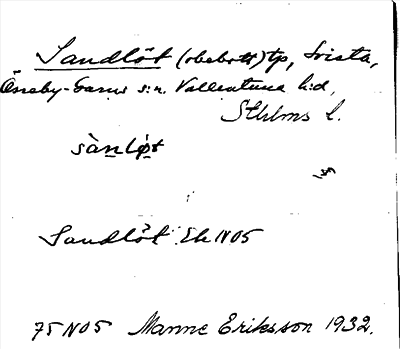 Sandlöt (obebott) tp, Frista,
Össeby-Garns s:n. Vallentuna h:d,
Sthlms l.
sànlö̀t
Sandlöt Ek N 05
75 N 05 Manne Eriksson 1932.